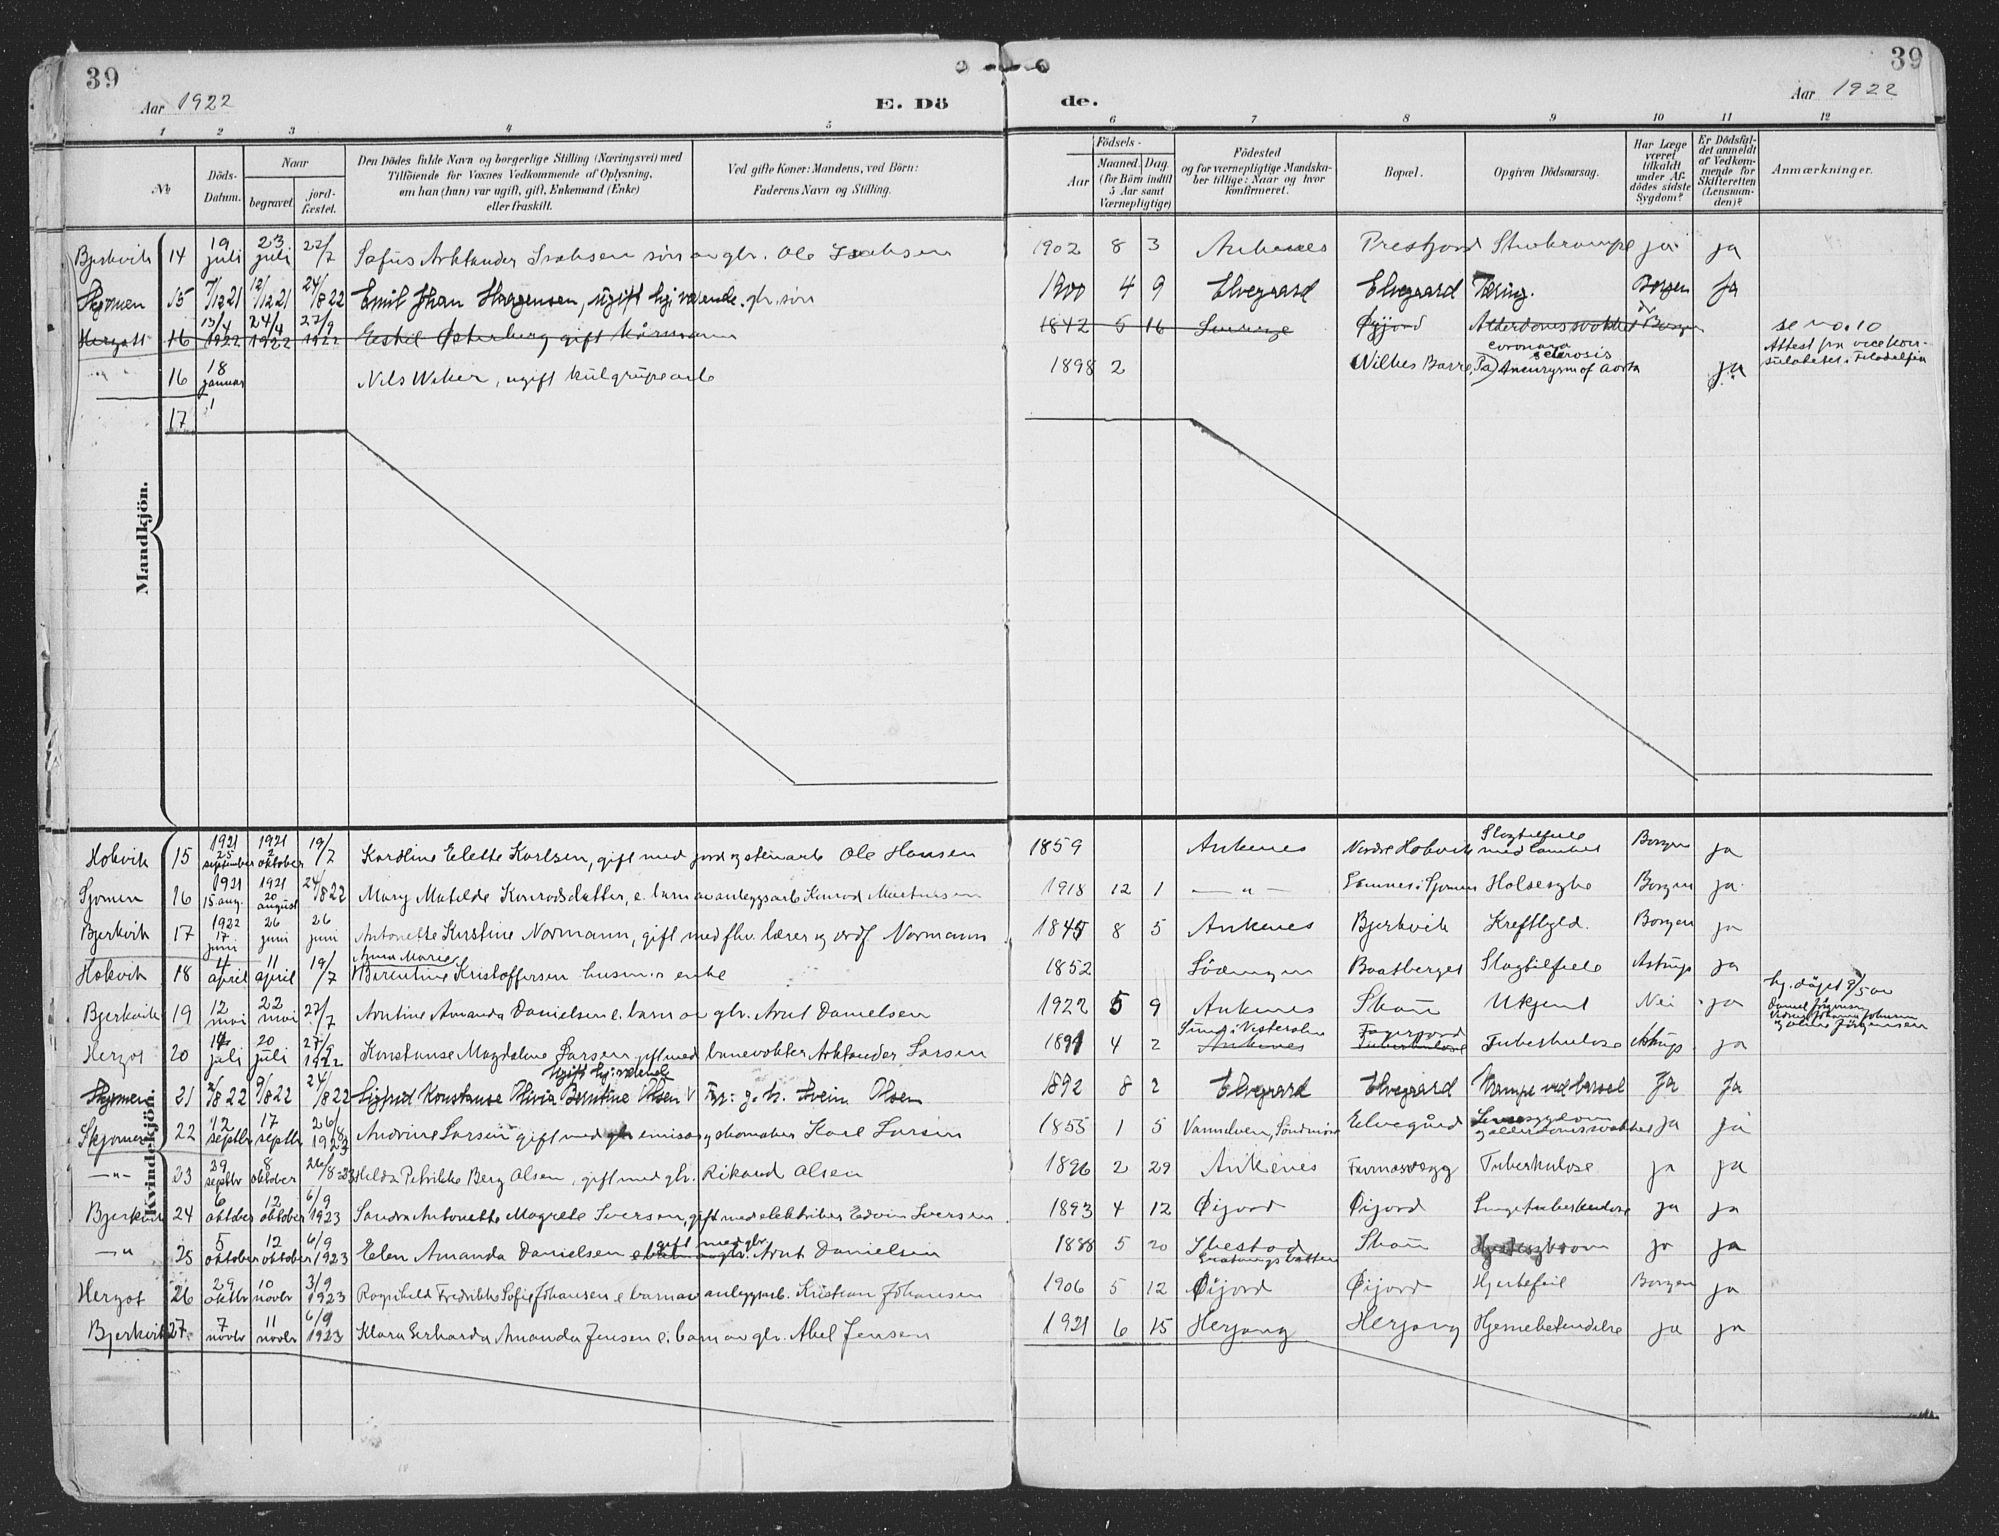 39
Aar 1922
E. Dö
de.
Aar 1922
39
1 2 3 4 5 6 7 8 9 10 11 12
No
Döds-Datum.
Naar
begravet.
jord-fæstet.
Den Dödes fulde Navn og borgerlige Stilling (Næringsvei) med
Tilföiende for Voxnes Vedkommende af Oplysning,
om han (hun) var ugift, gift, Enkemand (Enke)
eller fraskilt.
Ved gifte Koner: Mandens, ved Börn:
Faderens Navn og Stilling.
Födsels-
Aar
Maaned. Dag.
(for Börn indtil
5 Aar samt
Værnepligtige)
Födested
og for værnepligtige Mandska-
ber tillige: Naar og hvor
konfirmeret.
Bopæl.
Opgiven Dödsaarsag.
Har Læge
været
tilkaldt
under Af-
dödes sidste
Sygdom?
Er Dödsfal-
det anmeldt
af Vedkom-
mende for
Skifteretten
(Lensman-
den)?
Anmærkninger.
Mandkjön.
Bjerkvik 14 19 juli 23 juli 27/7 Sofus Arktander Isaksen sön av gbr. Ole Isaksen 1902 8 3 Ankenes Prestjord ja ja
Skjomen 15 7/12 21 12/12 21 24/8 22 Emil Johan Haagensen, ugift hjv værende gbr. sön 1900 4 9 Elvegaard Elvegaard Tæring. Borgen Ja
Hergott 16 13/4 1922 24/4 1922 27/9 1922 Eskil Österberg gift Mürmann 1842 5 16 Öyjord Alderdomssvakhet Borgen se no. 10
16 18 januar Nils Weker, ugift kulgrupearb 1898 2 Wilkes Barre, Pa) coronara sclerosis Aneurysm of Aorta ja Attest fra vicekon-
sulatet i Filadelfia
17
Kvindekjön.
Hokvik 15 1921 25 september 1921 2 oktober 19/7 Karoline Elette Karlsen, gift med jord og stenarb Ole Hansen 1859 Ankenes Nordre Hokvik Slagtilfelle med lamhet Borgen ja
Sjomen 16 1921 15 aug. 1921 20 august 24/8 22 Mary Matilde Konradsdatter, e. barn av anleggsarb Konrad Martinsen 1918 12 1 — " — Sömnes i Sjomen Halsesyke Borgen ja
Bjerkvik 17 1922 17 juni 26 juni 26 juni Antonette Kirstine Normann, gift med fhv. lærer og ordf. Normann 1845 8 5 Ankenes Bjerkvik Kreftsyld. Borgen ja
Hokvik 18 4 april 11 april 19/7 Anna Marie Berentine Kristoffersen husm.s enke 1852 Lödingen Baatberget Slagtilfelle Astrup ja
Bjerkvik 19 12 mai 22 mai 27/7 Arntine Amanda Danielsen e. barn av gbr. Arnt Danielsen 1922 5 9 Ankenes Skoan Ukjent Nei ja hj. döpt 9/5 av
Hergot 20 14 juli 20 juli 27/9 1922 Konstanse Magdalene Larsen gift med banevokter Arktander Larsen 1891 4 2 Sund i Vesteralen Ankenes Fagerjord Tuberkulose Tuberkulose Astrup ja
Skjomen 21 2/8 22 9/8 22 24/8 22 Sigfrid Konstanse Olivia Berntine Olsen ugift hj. værende Far: g. br. Svein Olsen 1892 8 2 Elvegaard Elvegaard Krampe ved barsel Ja Ja
Skjomen 22 12 septbr 17 septbr 26/8 1923 Andrine Larsen gift med gbr emisær og skomaker Karl Larsen 1855 1 5 Vannelven, Söndmöre Elvegård og alderdomssvakhet ja ja
—"— 23 29 septbr 8 oktober 26/8-23 Hilda Petrikke Berg Olsen, gift med gbr. Rikard Olsen 1896 2 29 Ankenes Furnesvegg Tuberkulose ja ja
Bjerkvik 24 6 oktober 12 oktober 6/9 1923 Sandra Antonette Magrete Iversen, gift med elektriker Edvin Iversen 1893 4 12 Öijord Öijord Lungetuberkulose ja ja
—" 25 5 oktober 12 oktober 6/9 1923 Elen Amanda Danielsen gift med gbr. Arnt Danielsen 1888 5 20 Ibestad Skoan ja ja
Hergot 26 29 oktbr 10 novbr 3/9 1923 Ragnhild Fredrikke Sofie Johansen e. barn av anleggsarb. Kristian Johansen 1906 5 12 Öijord Öijord Hjertefeil Borgen ja
Bjerkvik 27 7 novbr 11 novbr 6/9 1923 Klara Gerharda Amanda Jensen e. barn av gbr. Abel Jensen 1921 6 15 Herjang Herjang Hjernebetendelse ja ja